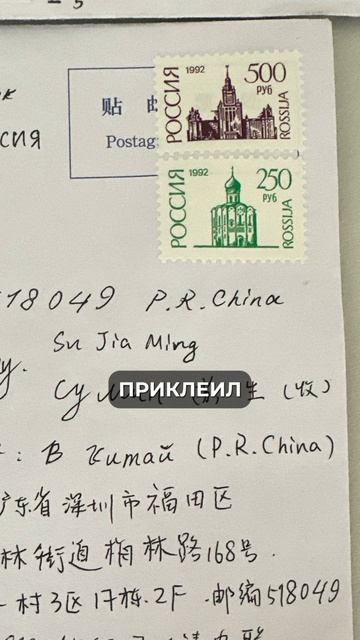 СИЯ
贴
Postag
РОССИЯ 1992 500 РУБ ROSSIJA
РОССИЯ 1992 250 РУБ ROSSIJA
518049 P.R.China
Su Jia Ming
у.
Су 生 (收)
ПРИКЛЕИЛ
: В Китай (P.R.China)
广东省深圳市福田区
林街道梅林路168号.
村3区17栋.2F.邮编518049